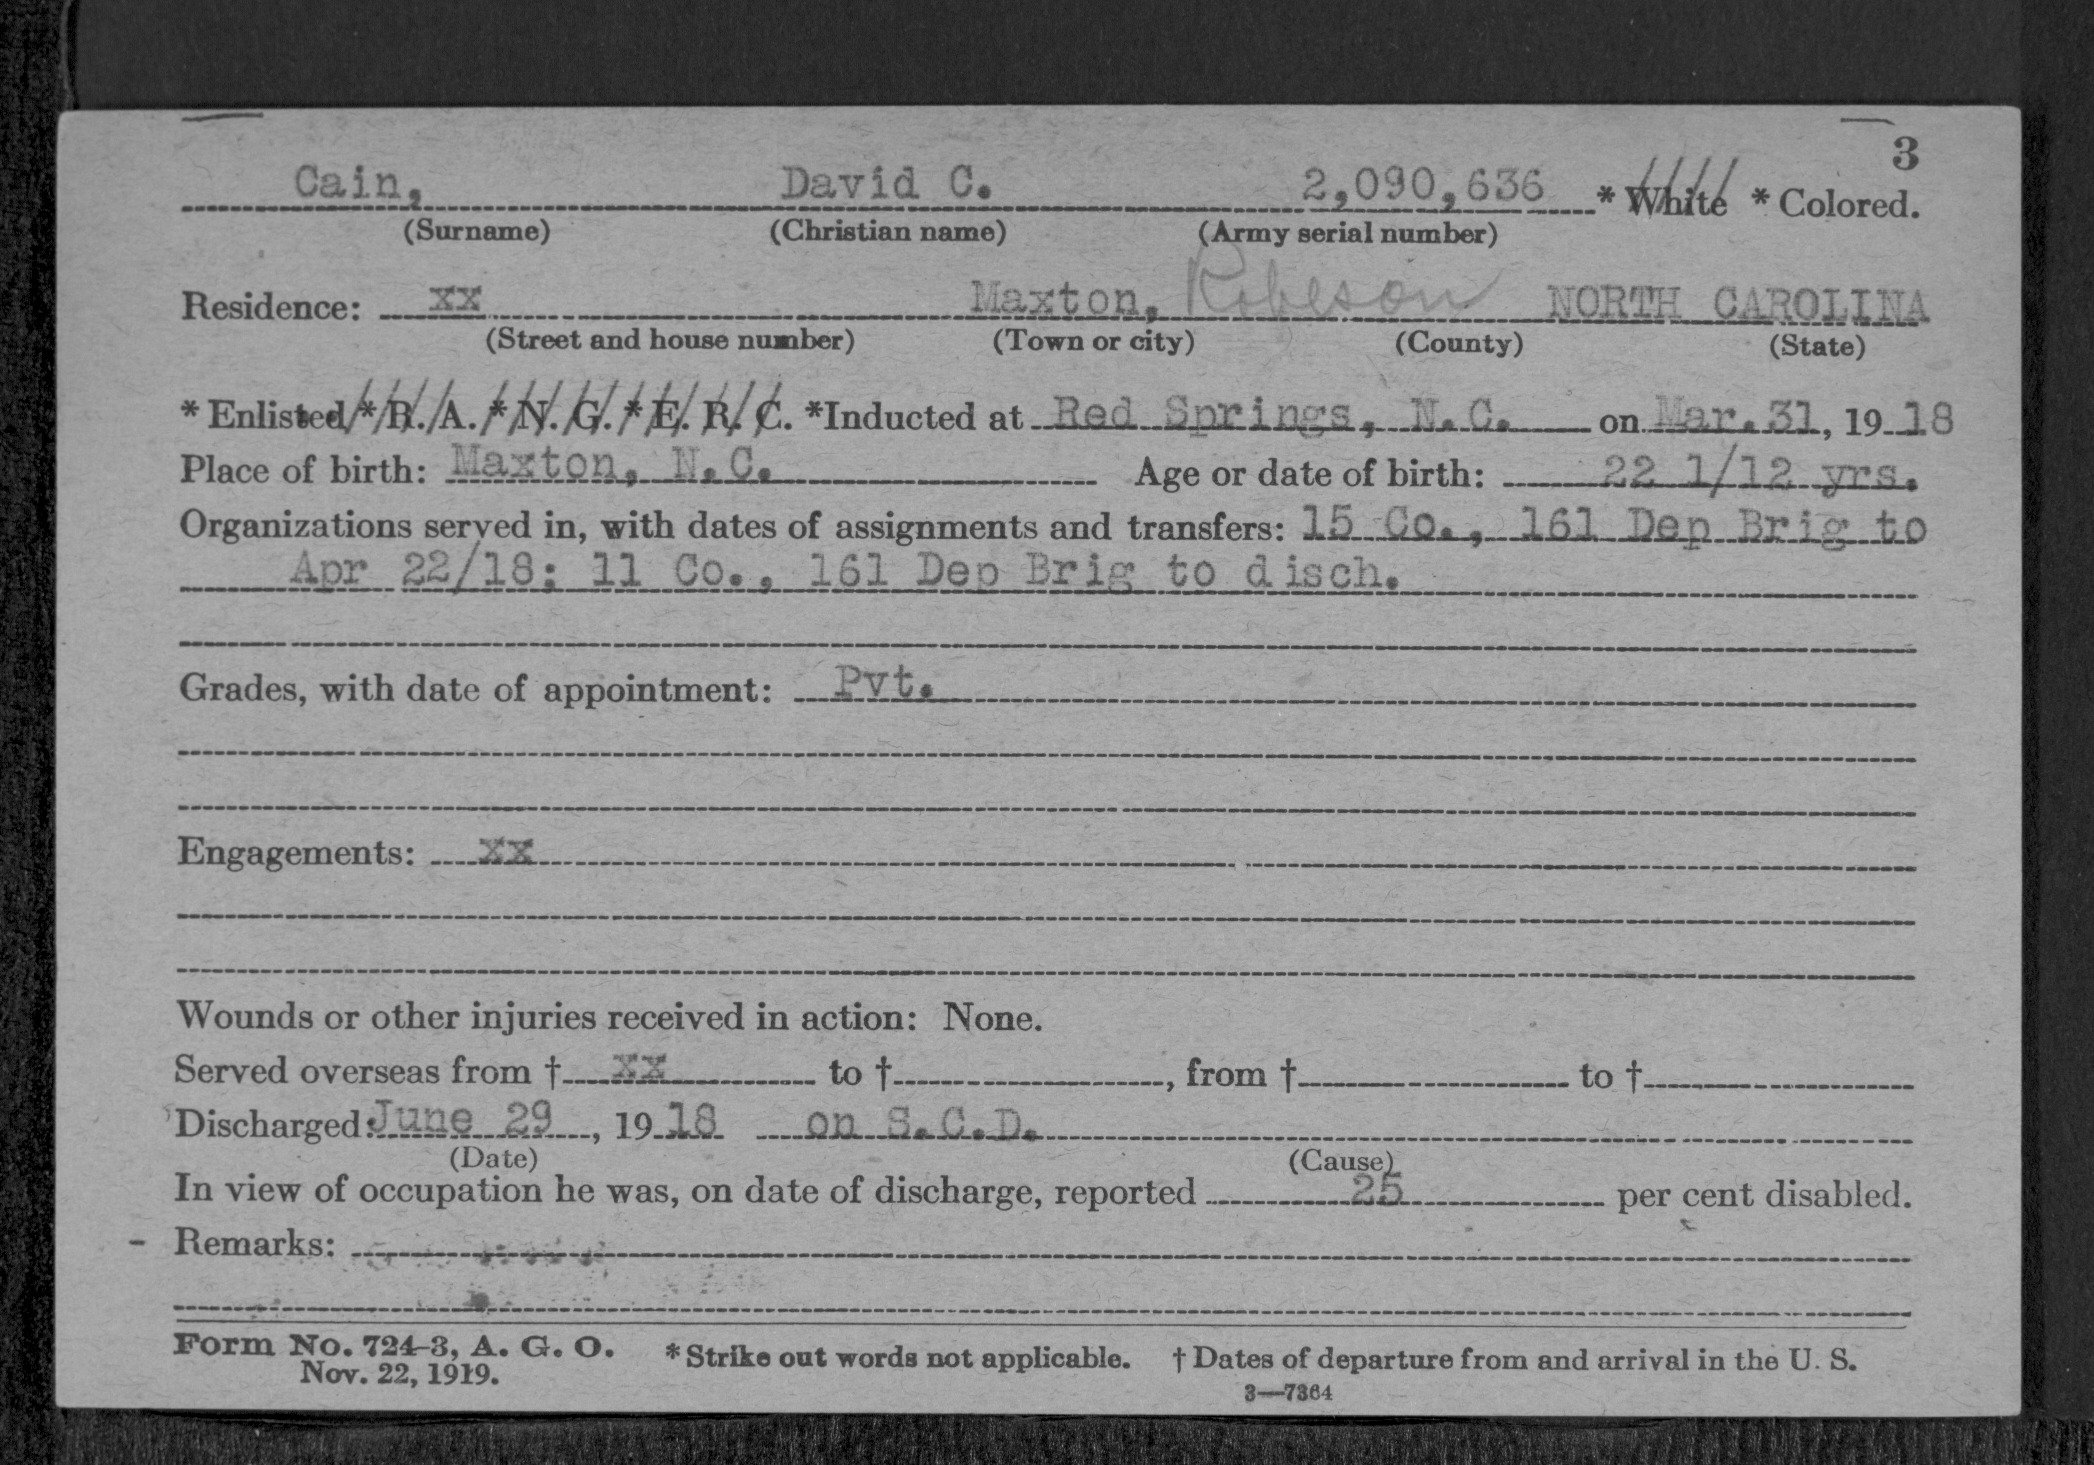 3
Cain, David C. 2,090,636 * White * Colored.
(Surname) (Christian name) (Army serial number)
Residence: xx Maxton, Robeson NORTH CAROLINA
(Street and house number) (Town or city) (County) (State)
* Enlisted * R. A. * N. G. * E. R. C. *Inducted at Red Springs, N.C. on Mar. 31, 19 18
Place of birth: Maxton, N.C. Age or date of birth: 22 1/12 yrs.
Organizations served in, with dates of assignments and transfers: 15 Co., 161 Dep Brig to
Apr 22/18; 11 Co., 161 Dep Brig to disch.
Grades, with date of appointment: Pvt.
Engagements: xx
Wounds or other injuries received in action: None.
Served overseas from † xx to †, from † to †
Discharged: June 29, 19 18 on S.C.D.
(Date) (Cause)
In view of occupation he was, on date of discharge, reported 25 per cent disabled.
- Remarks:
Form No. 724-3, A. G. O. * Strike out words not applicable. † Dates of departure from and arrival in the U. S.
Nov. 22, 1919. 3—7364